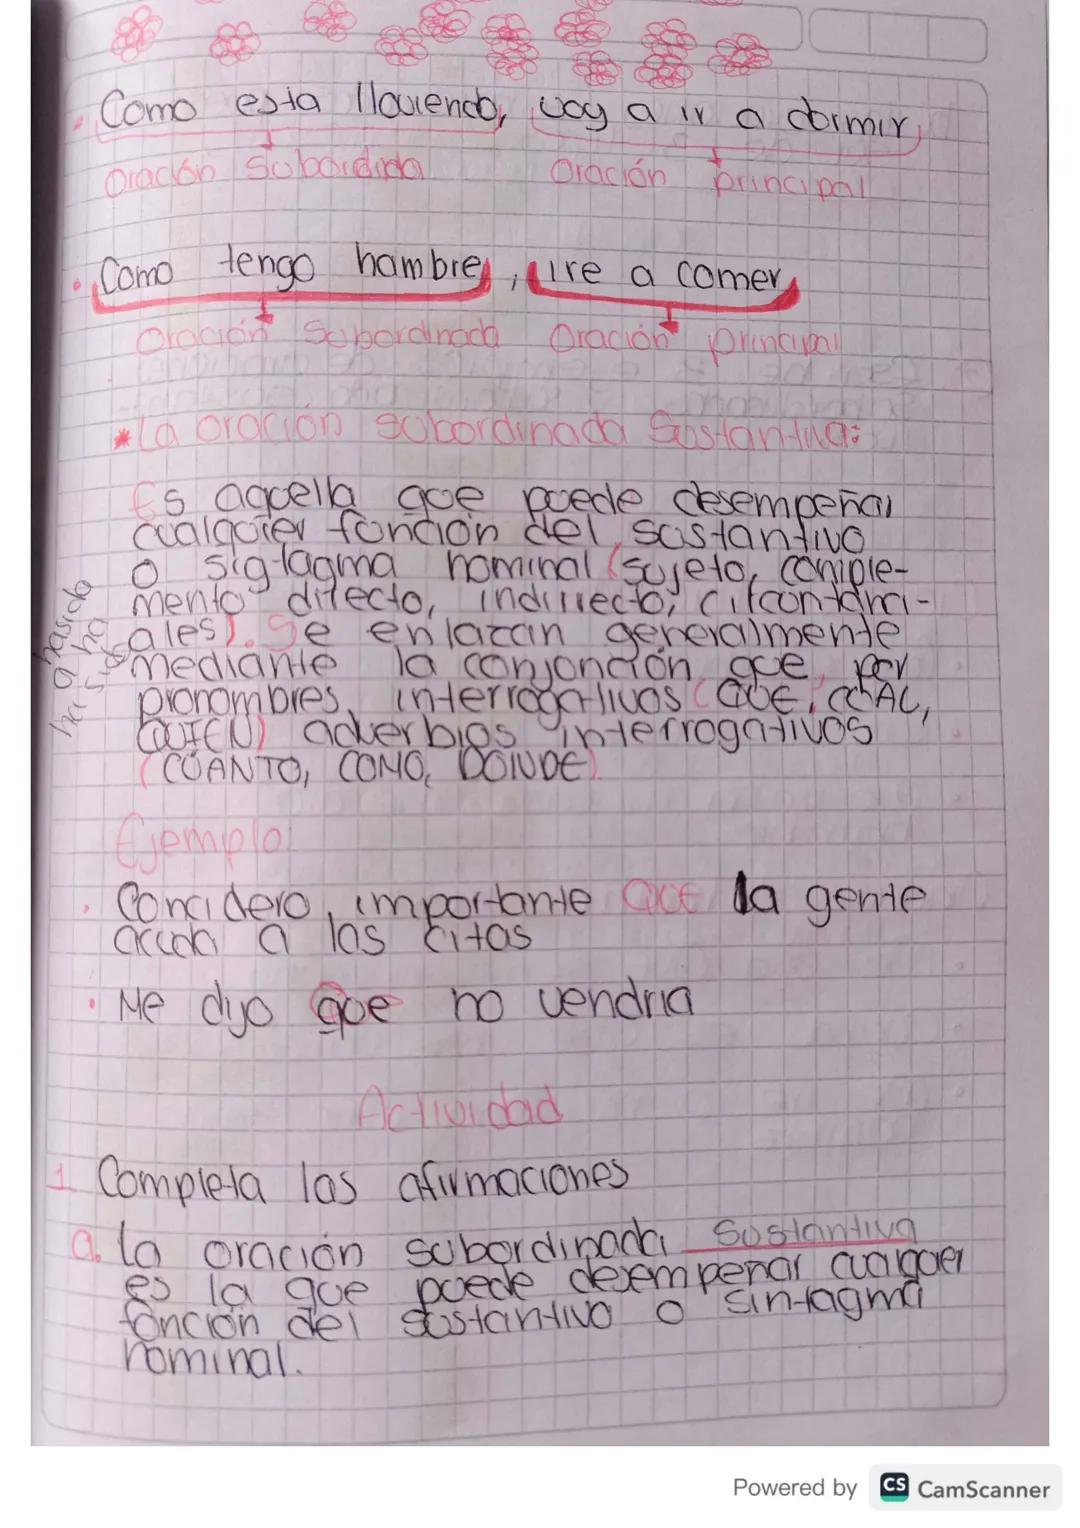 Como esta lloviendo, voy a ir a dormir,
Oración Subordida Oración principal
Como tengo hambre, ire a comer,
Oración Subordinada Oración principal
*La oración subordinada Sustantiva:
Es aquella que puede desempeñar
cualquier función del sustantivo
o sigtagma nominal (sujeto, comple-
mento directo, indirrecto, circontanci-
ales). Se enlazan generalmente
mediante la conjonción que, por
pronombres interrogativos (QUE, CUAL,
QUIEN) adverbios interrogativos
(CUANTO, COMO, DONDE)
a ha sido
ha sido
Ejemplo
Concidero, importante QUE la gente
acuda a las citas
Me dijo que no vendria
Actividad
1 Completa las afirmaciones
a. la oración subordinada sustantiva
es la que puede desempeñar cualquier
función del sustantivo o sintagma
nominal.
Powered by CS CamScanner